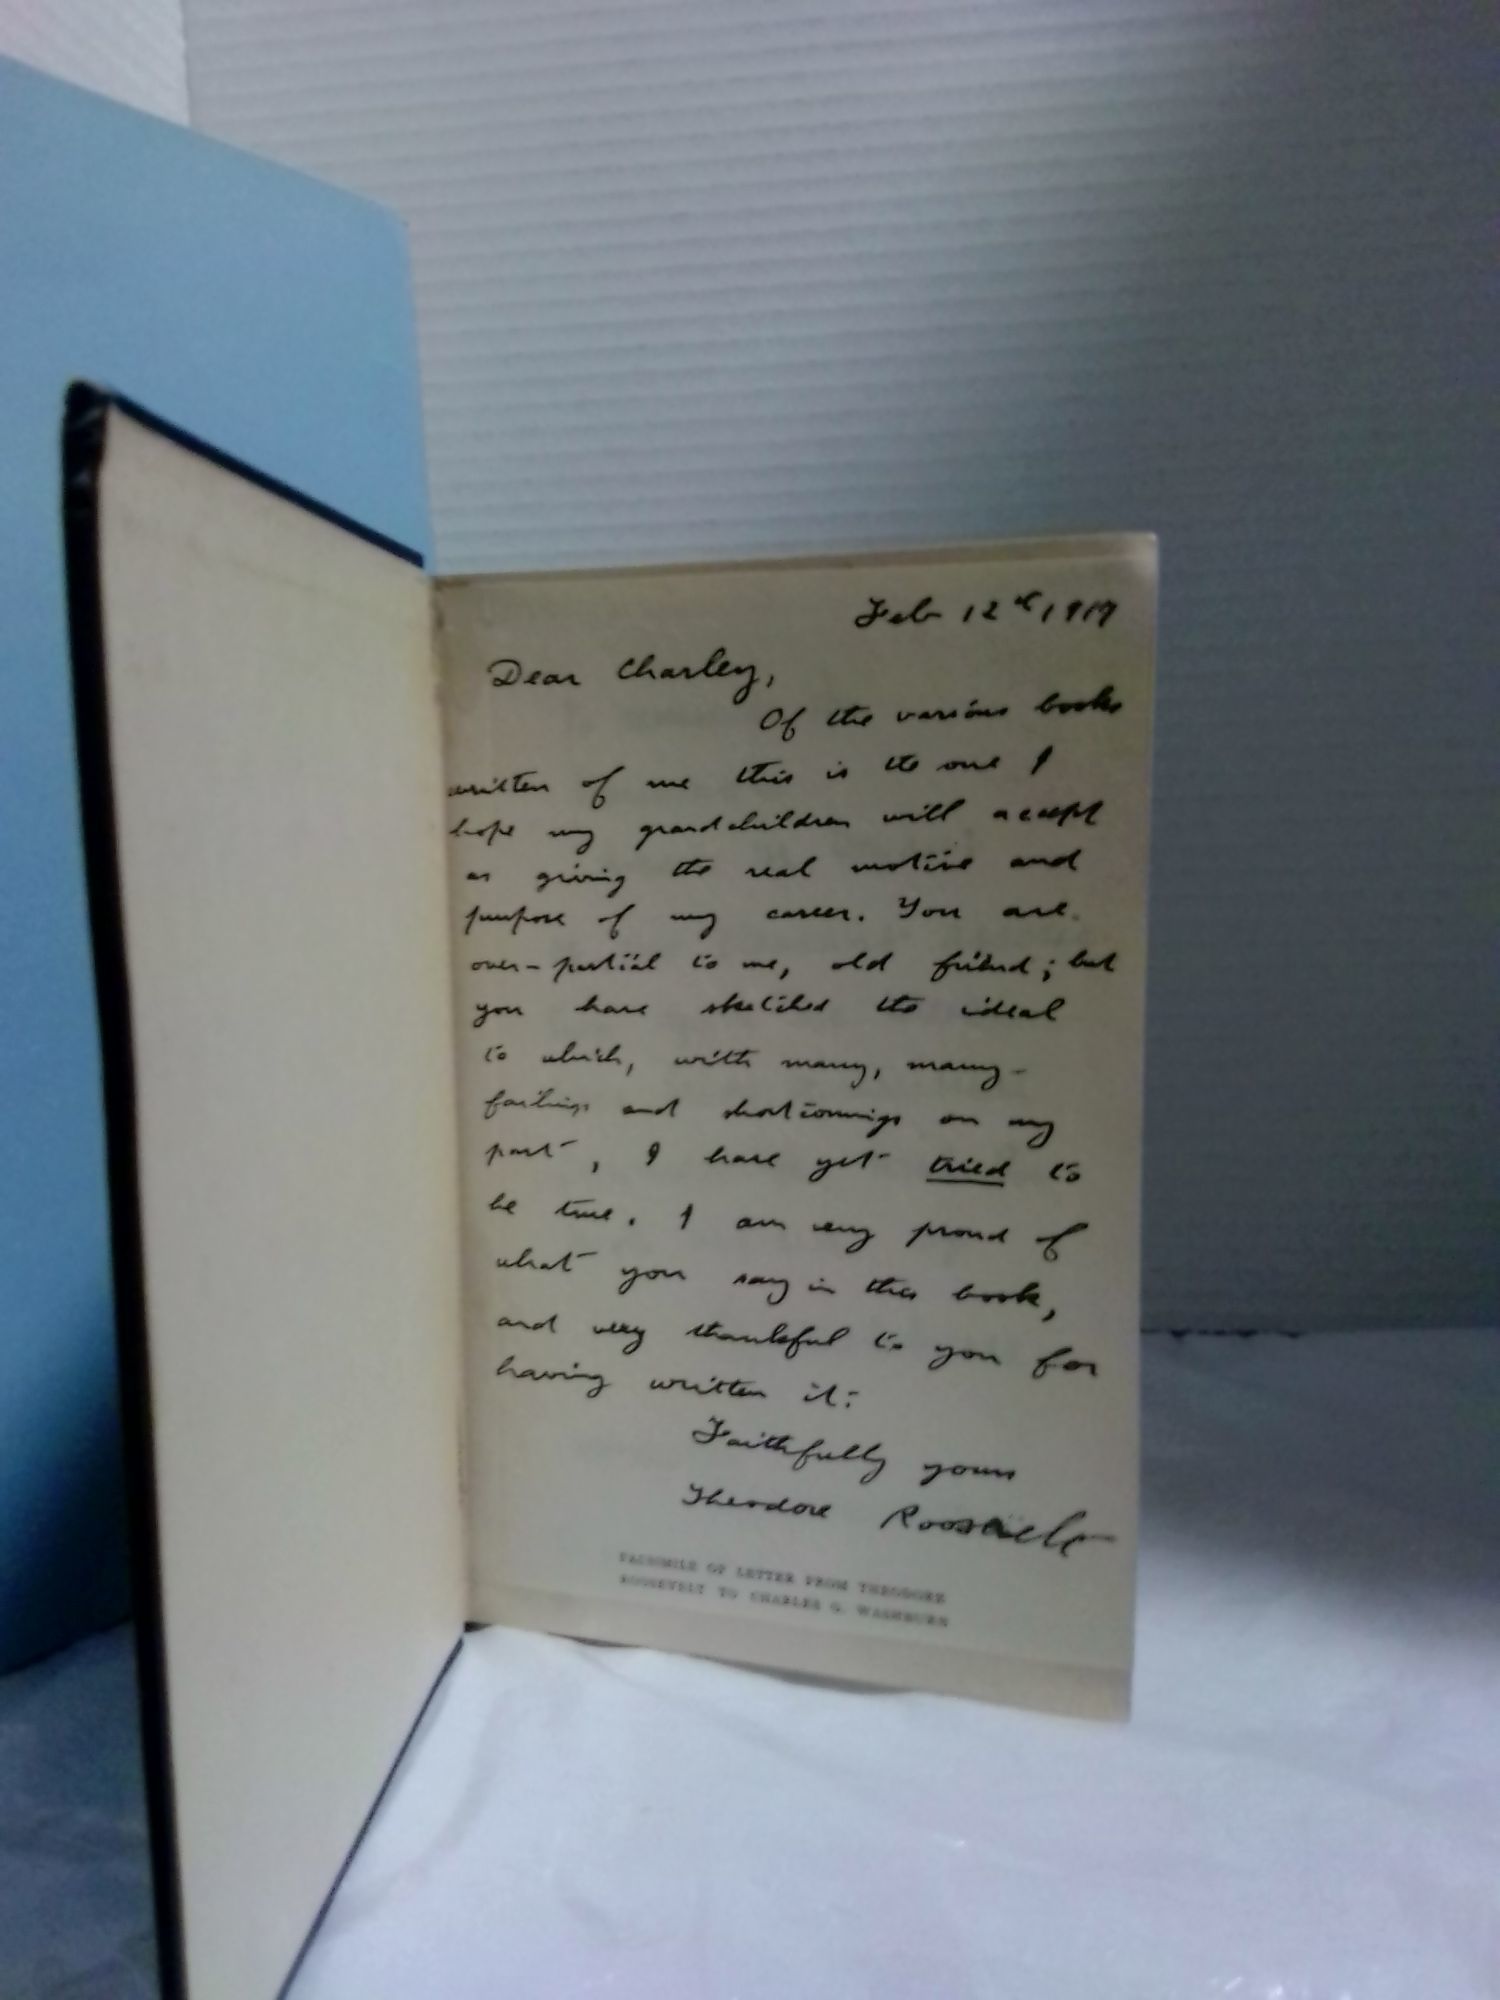 Feb 12th 1917
Dear Charley,
Of the various books
written of me this is the one I
hope my grandchildren will accept
as giving the real motive and
purpose of my career. You are
over-partial to me, old friend; but
you have sketched the ideal
to which, with many, many
failings and shortcomings on my
part, I have yet tried to
be true. I am very proud of
what you say in this book,
and very thankful to you for
having written it:
Faithfully yours
Theodore Roosevelt
FACSIMILE OF LETTER FROM THEODORE
ROOSEVELT TO CHARLES G. WASHBURN